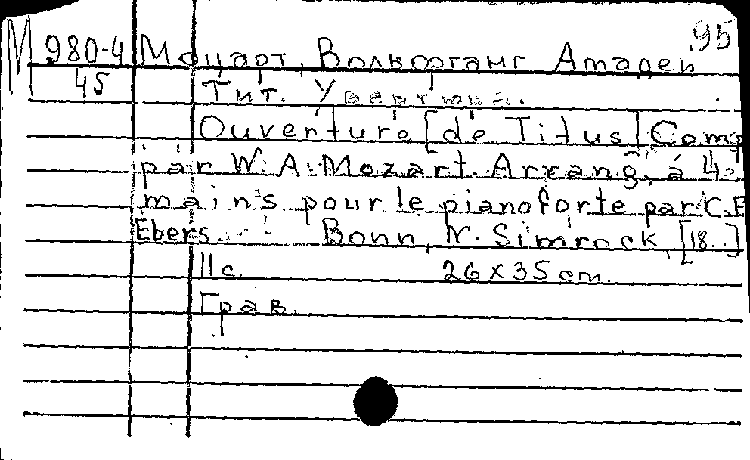 95
М 980-4 Моцарт, Вольфганг Амадей
45 Тит. Увертюра.
Ouverture [de Titus] Comp
par W. A. Mozart. Arrang. à 4
mains pour le pianoforte par C.F
Ebers... Bonn, N. Simrock, [18..]
11 с. 26 x 35 cm.
Грав.